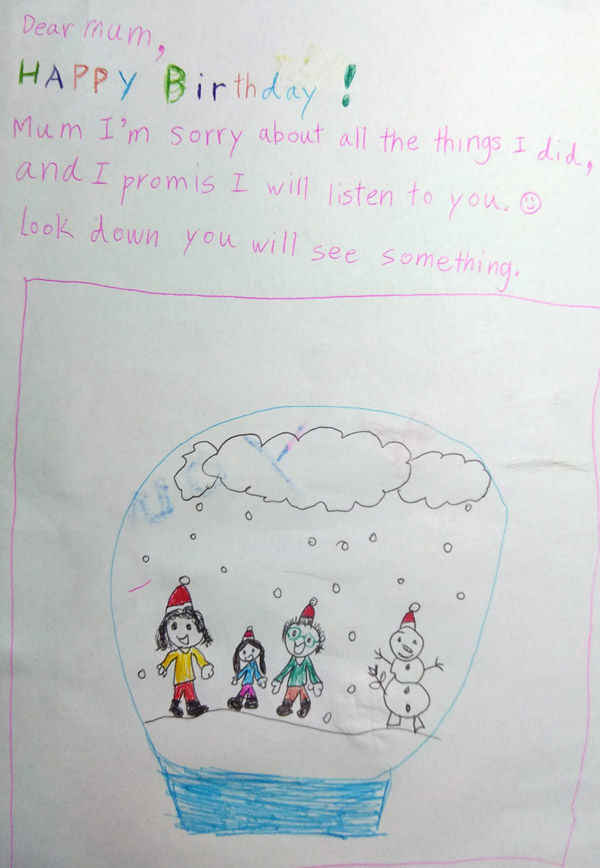 Dear mum,
HAPPY Birthday !
Mum I'm sorry about all the things I did,
and I promis I will listen to you. ☺
Look down you will see something.